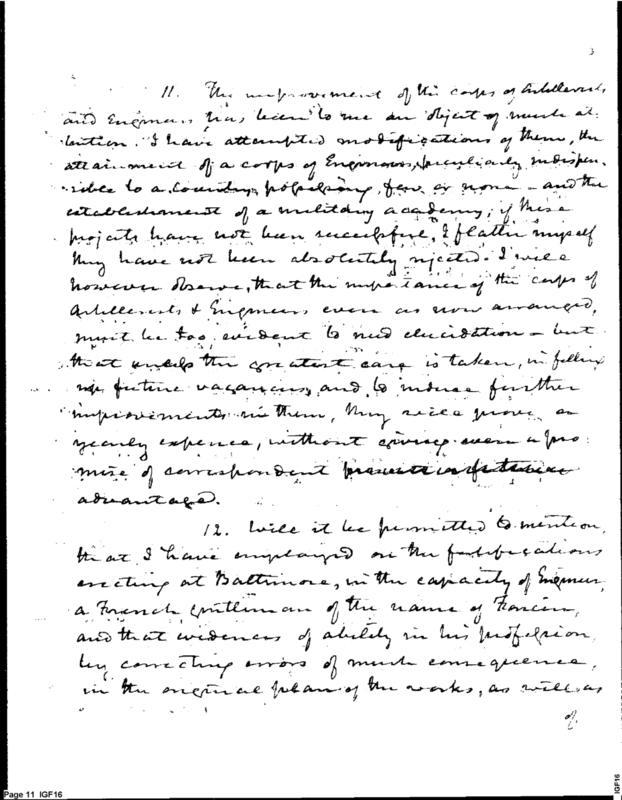 3
11. The improvement of the corps of Artillerists
and Engineers has been to me an object of much at-
tention. I have attempted modifications of them, the
attainment of a corps of Engineers, peculiarly indispen-
sible to a Country possessing few or none – and the
establishment of a military academy; if these
projects have not been successful, I flatter myself
they have not been absolutely rejected. I will
however observe, that the importance of the corps of
Artillerists & Engineers even as now arranged,
must be too evident to need elucidation – but
that unless the greatest care is taken, in filling
up future vacancies, and to induce further
improvements in them, they will prove a
yearly expence, without giving even a pro-
mise of correspondent
advantages.
12. Will it be permitted to mention,
that I have employed on the fortifications
erecting at Baltimore, in the capacity of Engineer,
a French gentleman of the name of Foncin,
and that evidences of ability in his profession,
by correcting errors of much consequence,
in the original plan of the works, as well as
of
Page 11 IGF16
IGF16